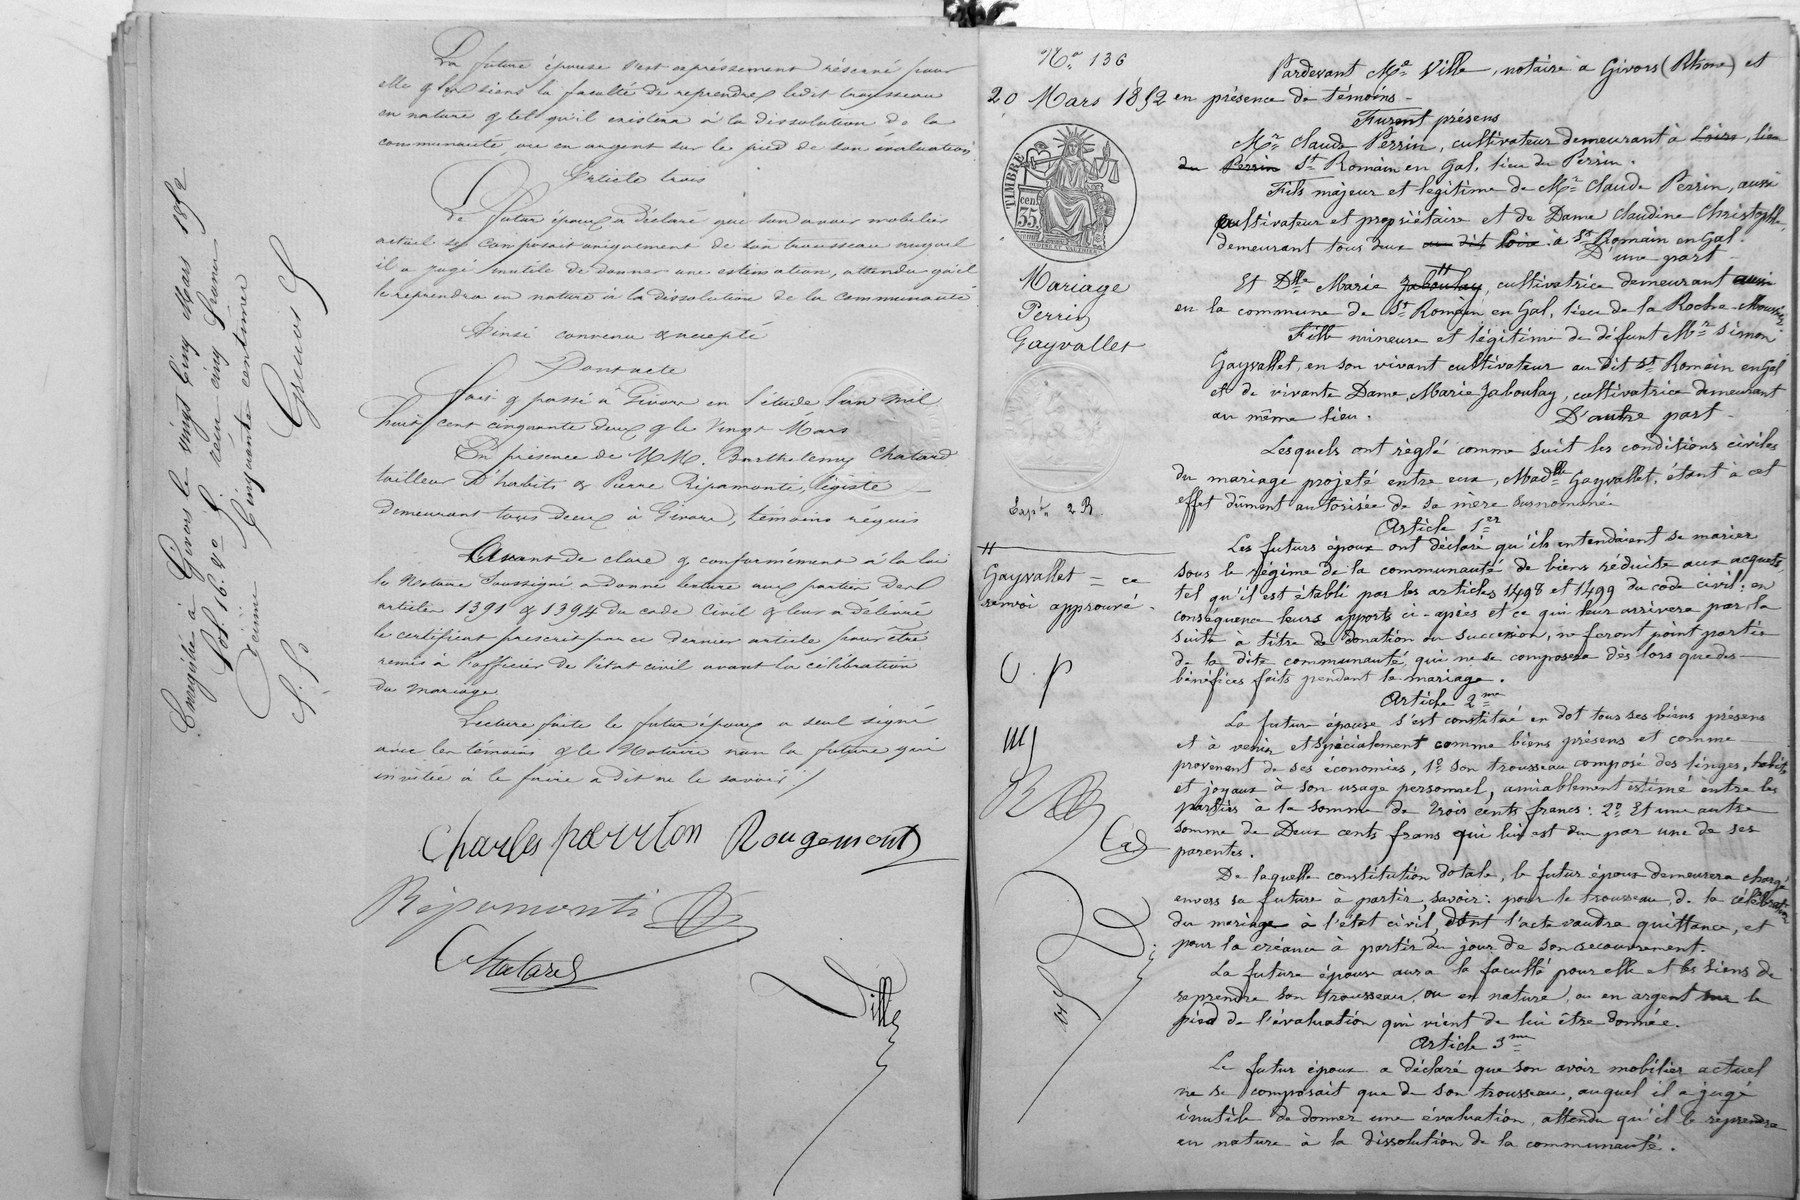 La future épouse s'est expréssement réservé pour
elle & les siens la faculté de reprendre ledit trousseau
en nature & tel qu'il existera à la dissolution de la
communauté, ou en argent sur le pied de son évaluation.
Article trois
Le futur époux a déclaré que son avoir mobilier
actuel se composait uniquement de son trousseau auquel
il a jugé inutile de donner une estimation, attendu qu'il
le reprendra en nature à la dissolution de la communauté
Ainsi convenu & accepté
Dont acte
Fait & passé à Givors en l'étude l'an mil
huit cent cinquante deux & le vingt Mars
En présence de M.M. Barthelemy Chatard
tailleur d'habits & Pierre Ripamonti, légiste
demeurant tous deux à Givors, témoins réquis
Avant de clore & conformément à la loi
le Notaire soussigné a donné lecture aux parties des
articles 1391 & 1394 du code civil & leur a délivré
le certificat prescrit par ce dernier article pour être
remis à l'officier de l'état civil avant la célébration
du mariage
Lecture faite le futur époux a seul signé
avec les témoins & le Notaire non la future qui
invitée à le faire a dit ne le savoir ./
Charles Rougemont
Ripamonti
Chatard
Ville
Enregistré à Givors le vingt cinq Mars 1852
fol. 16. reçu cinq francs
décime cinquante centimes
No 136
20 Mars 1852
TIMBRE
35 cent
Mariage
Perrin
Gayvallet
Expn 2 R.
Gayvallet = ce
renvoi approuvé.
C. P
Pardevant Me Ville, notaire à Givors (Rhône) et
en présence de témoins -
Furent présens
Mr Claude Perrin, cultivateur demeurant à Loire, lieu
du Perrin St Romain en Gal, lieu du Perrin.
Fils majeur et légitime de Mr Claude Perrin, aussi
cultivateur et propriétaire et de Dame Claudine Christophle,
demeurant tous deux au dit Loire à St Romain en Gal.
D'une part
Et Dlle Marie Jaboulay, cultivatrice demeurant aussi
en la commune de St Romain en Gal, lieu de la Roche
Fille mineure et légitime de défunt Mr Simon
Gayvallet, en son vivant cultivateur au dit St Romain en Gal
et de vivante Dame Marie Jaboulay, cultivatrice demeurant
au même lieu. D'autre part -
Lesquels ont réglé comme suit les conditions civiles
du mariage projeté entre eux, Madlle Gayvallet, étant à cet
effet dûment autorisée de sa mère susnommée
Article 1er
Les futurs époux ont déclaré qu'ils entendaient se marier
sous le régime de la communauté de biens réduite aux acquets,
tel qu'il est établi par les articles 1498 et 1499 du code civil: en
conséquence leurs apports ci-après et ce qui leur arrivera par la
suite à titre de donation ou succession, ne feront point partie
de la dite communauté, qui ne se composera dès lors que des
bénéfices faits pendant le mariage.
Article 2me
La future épouse s'est constitué en dot tous ses biens présens
et à venir et spécialement comme biens présens et comme
provenant de ses économies, 1o son trousseau composé des linges, habits
et joyaux à son usage personnel, amiablement estimé entre les
parties à la somme de Trois cents francs: 2o Et une autre
somme de Deux cents frans qui lui est due par une de ses
parentes.
De laquelle constitution dotale, le futur époux demeurera chargé
envers sa future à partir, savoir: pour le trousseau, de la célébration
du mariage à l'état civil, dont l'acte vaudra quittance, et
pour la créance à partir du jour de son recouvrement.
La future épouse aura la faculté pour elle et les siens de
reprendre son trousseau, ou en nature, ou en argent sur le
pied de l'évaluation qui vient de lui être donnée.
Article 3me
Le futur époux a déclaré que son avoir mobilier actuel
ne se composait que de son trousseau, auquel il a jugé
inutile de donner une évaluation, attendu qu'il le reprendra
en nature à la dissolution de la communauté.